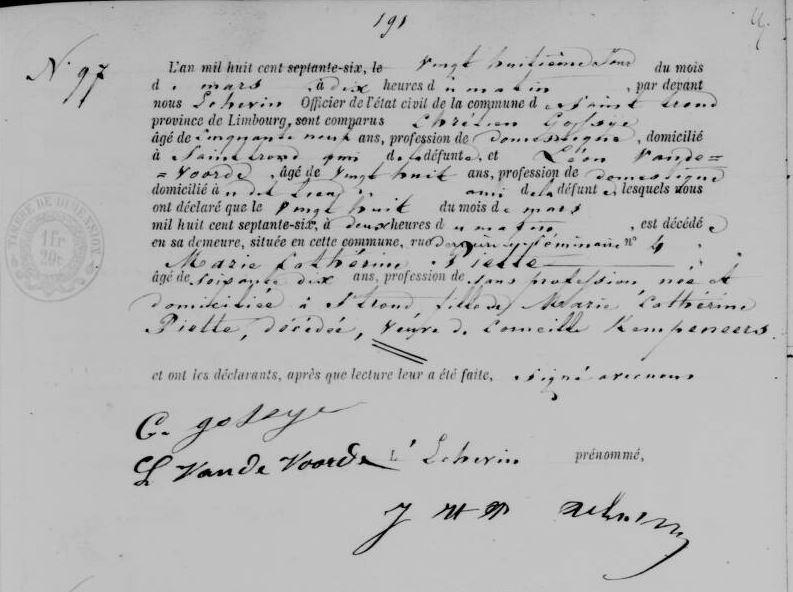 191
N° 97
L'an mil huit cent septante-six, le vingt huitième jour du mois
de mars, à dix heures du matin, par devant
nous Echevin Officier de l'état civil de la commune de Saint Trond
province de Limbourg, sont comparus Chrétien Gosseye
âgé de Cinquante neuf ans, profession de domestique, domicilié
à Saint trond ami de la défunte, et Léon Vande=
=Voorde, âgé de Vingt huit ans, profession de domestique
domicilié à ami de la défunte, lesquels nous
ont déclaré que le Vingt huit du mois de mars
mil huit cent septante-six, à deux heures du matin, est décédée
en sa demeure, située en cette commune, rue Séminaire n° 4
Marie Cathérine Piette
âgé de Soixante dix ans, profession de sans profession, née et
domiciliée à St Trond fille de Marie Cathérine
Piette, décédée, Veuve de Corneille Kempeneers
et ont les déclarants, après que lecture leur a été faite, signé avec nous
C. Gosseye
L Van de Voorde
L'Echevin prénommé,